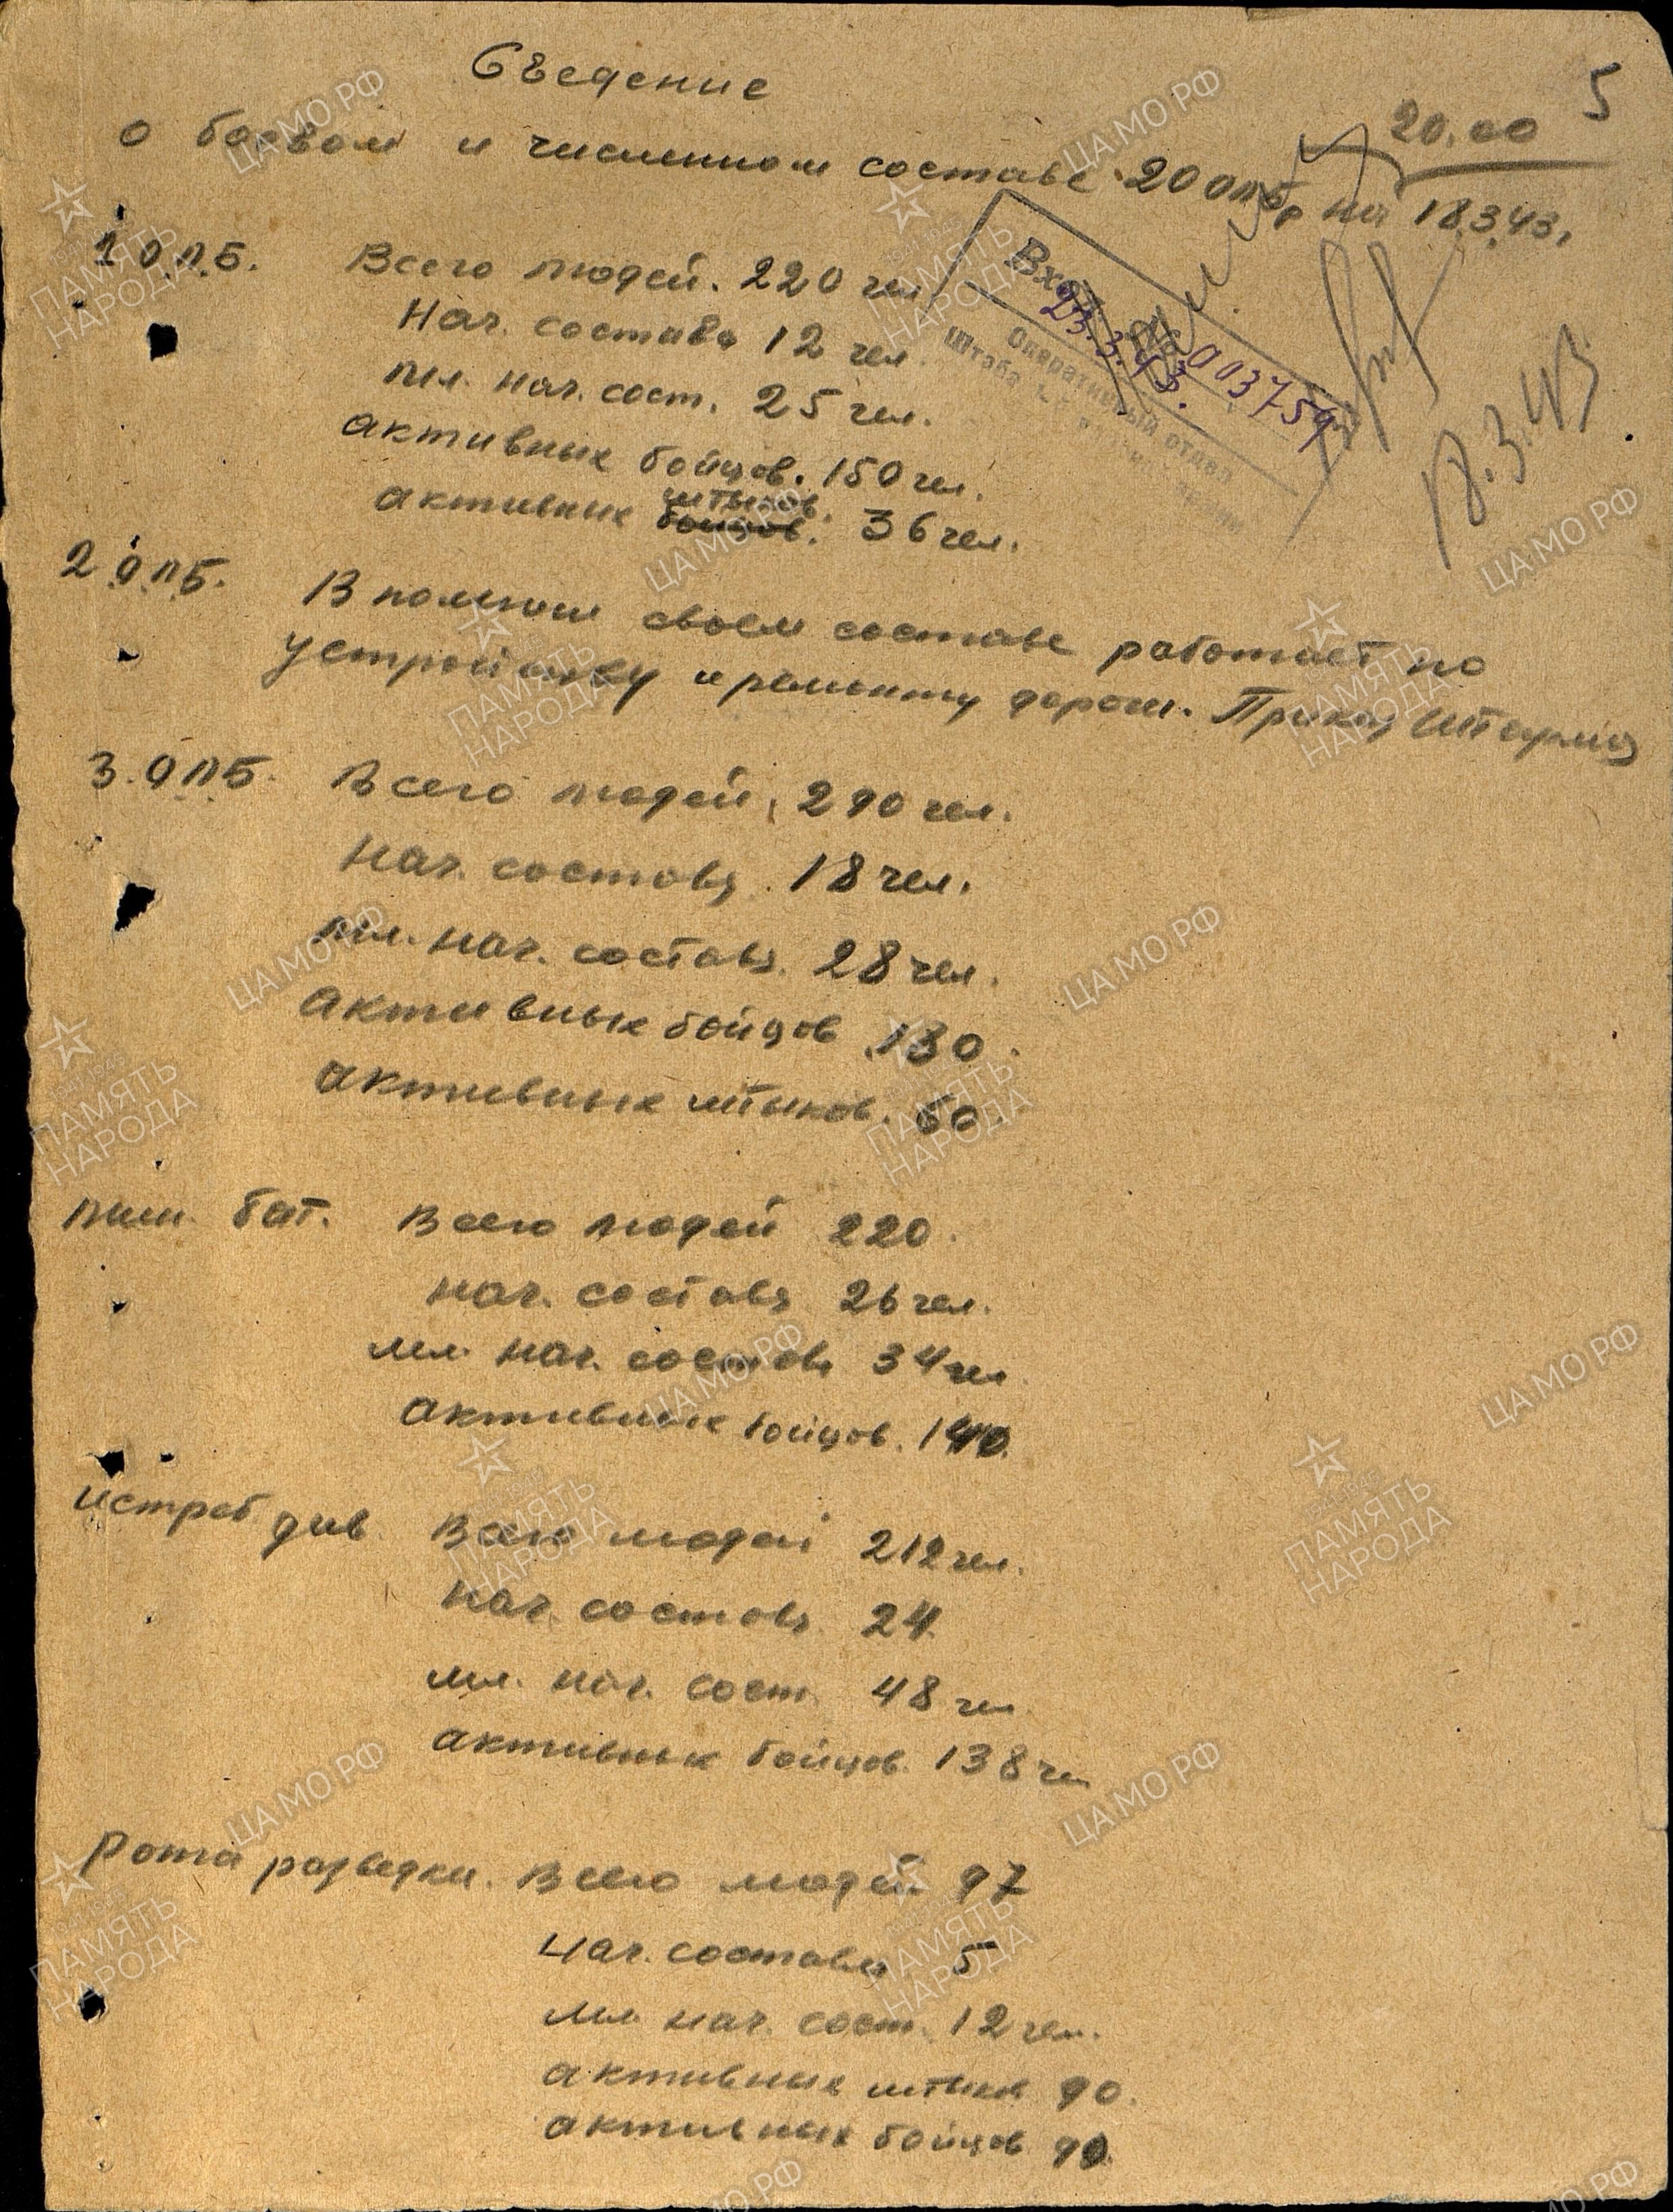 5
Съедение
20.00
о боевом и численном составе 20 опбр на 18.3.43.
1 о.п.б. Всего людей. 220 чел
Нач. состава 12 чел.
мл. нач. сост. 25 чел.
активных бойцов. 150 чел.
штыков.
активных бойцов. 36 чел.
Вход. № 003759
23.3.43.
Оперативный отдел
Штаба
18.3.43
2 о.п.б. В полном своем составе работает по
устройству и ремонту дорог. Приказ штарма
3. о.п.б. Всего людей, 290 чел.
нач. состава 18 чел.
мл. нач. состава. 28 чел.
активных бойцов 180.
активных штыков. 60.
мин. бат. Всего людей 220.
нач. состава 26 чел.
мл. нач. состава 34 чел
активных бойцов. 140.
истреб. див. Всего людей 212 чел.
нач. состава 24
мл. нач. сост. 48 чел
активных бойцов. 138 чел
Рота разведки. Всего людей 97
нач. состава 5
мл. нач. сост. 12 чел.
активных штыков 90.
активных бойцов 90.
ЦАМО РФ
ПАМЯТЬ
НАРОДА